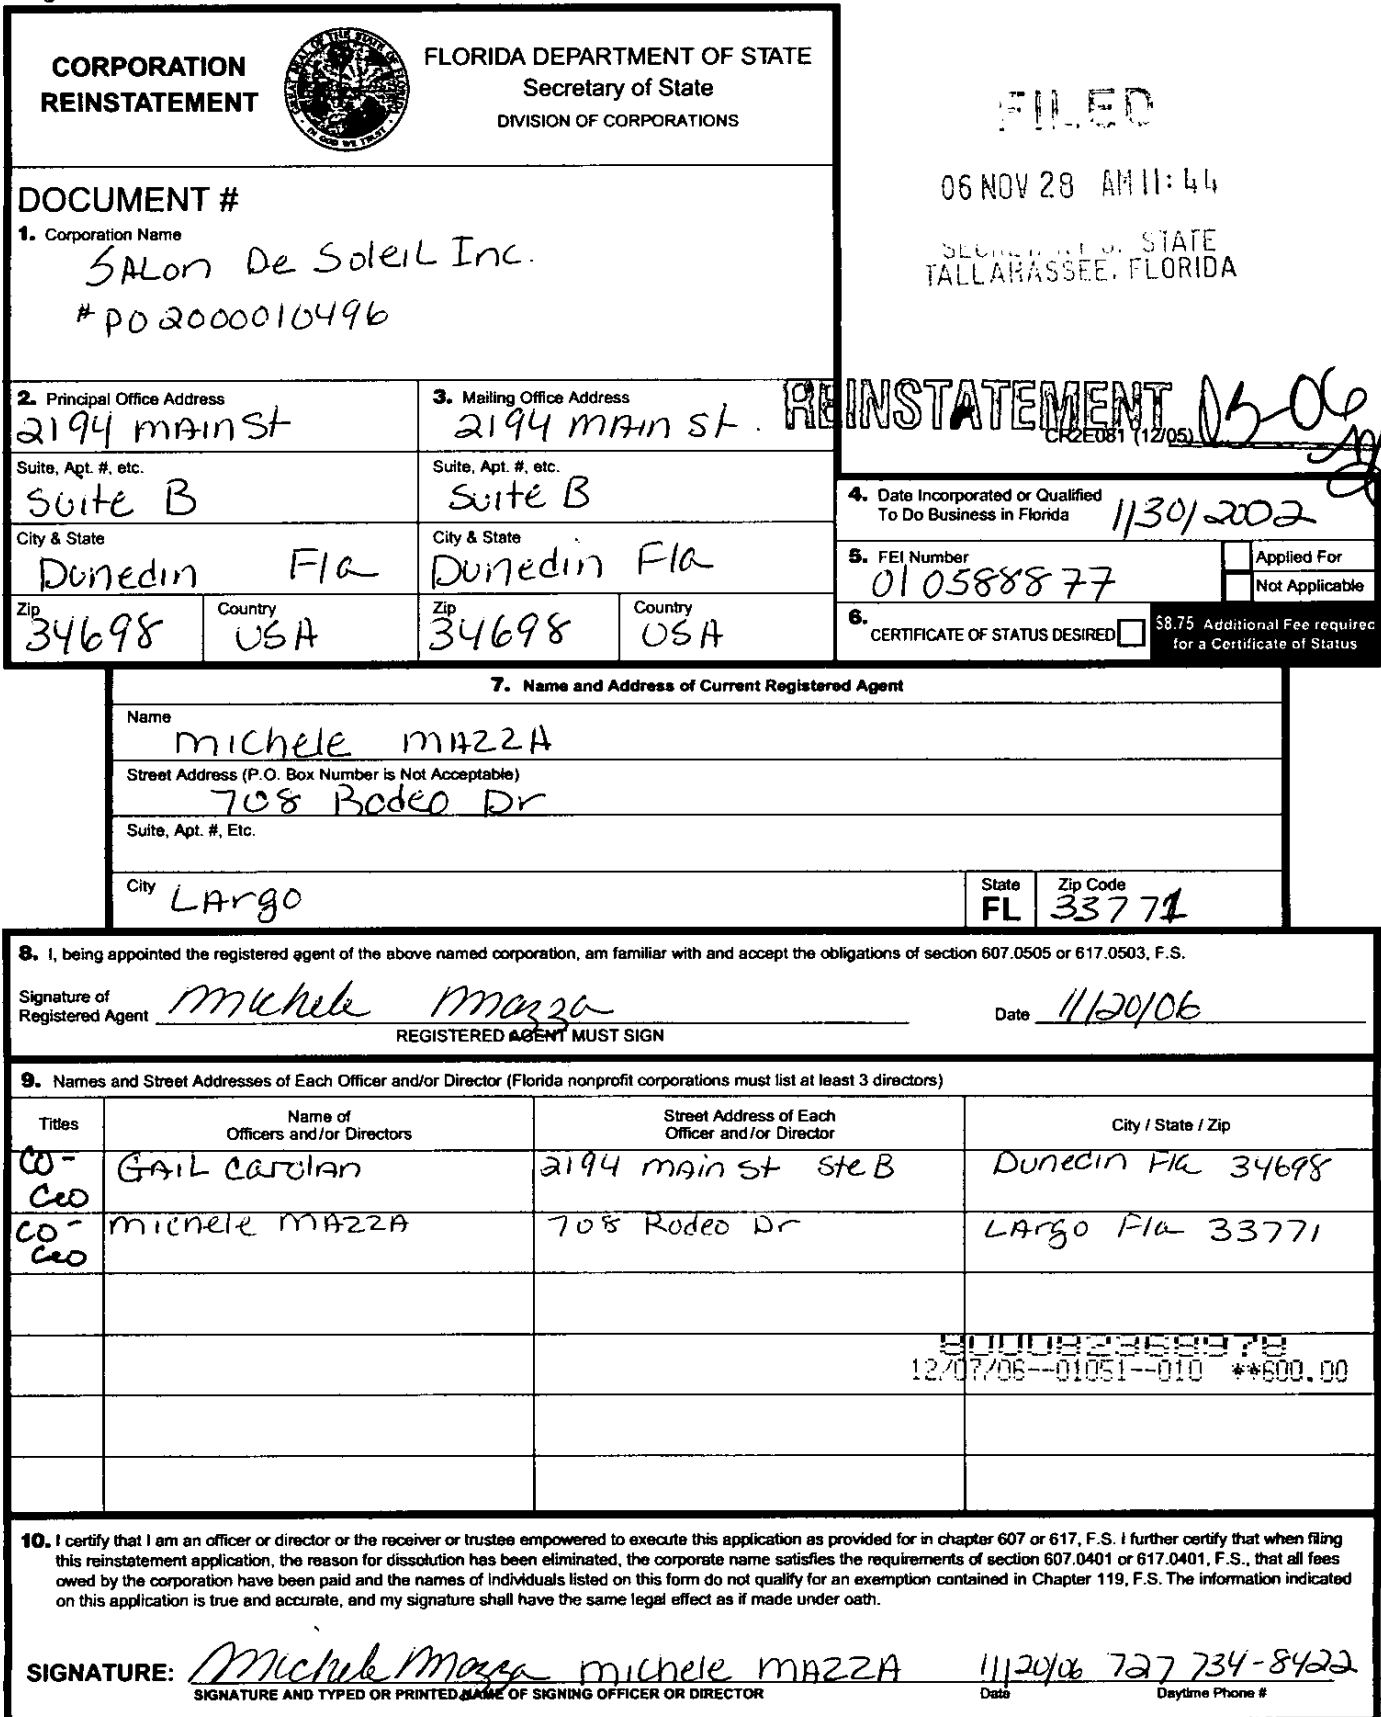 CORPORATION
REINSTATEMENT
FLORIDA DEPARTMENT OF STATE
Secretary of State
DIVISION OF CORPORATIONS
FILED
06 NOV 28 AM 11:44
STATE
TALLAHASSEE, FLORIDA
DOCUMENT #
1. Corporation Name
SALon De SoleiL Inc.
# P02000010496
REINSTATEMENT 05-06
CR2E081 (12/05)
2. Principal Office Address
2194 mAin St
3. Mailing Office Address
2194 mAin St.
Suite, Apt. #, etc.
Suite B
Suite, Apt. #, etc.
Suite B
City & State
Dunedin Fla
City & State
Dunedin Fla
Zip
34698
Country
USA
Zip
34698
Country
USA
4. Date Incorporated or Qualified
To Do Business in Florida
1/30/2002
5. FEI Number
010588877
Applied For
Not Applicable
6. CERTIFICATE OF STATUS DESIRED
$8.75 Additional Fee required
for a Certificate of Status
7. Name and Address of Current Registered Agent
Name
michele mAZZA
Street Address (P.O. Box Number is Not Acceptable)
708 Rodeo Dr
Suite, Apt. #, Etc.
City
LArgo
State
FL
Zip Code
33771
8. I, being appointed the registered agent of the above named corporation, am familiar with and accept the obligations of section 607.0505 or 617.0503, F.S.
Signature of
Registered Agent Michele Mazza
REGISTERED AGENT MUST SIGN
Date 11/20/06
9. Names and Street Addresses of Each Officer and/or Director (Florida nonprofit corporations must list at least 3 directors)
Titles
Name of
Officers and/or Directors
Street Address of Each
Officer and/or Director
City / State / Zip
CO-
Ceo
GAIL Carolan
2194 mAin St Ste B
Dunedin Fla 34698
CO-
Ceo
michele mAZZA
708 Rodeo Dr
LArgo Fla 33771
800082368978
12/07/06--01051--010 **600.00
10. I certify that I am an officer or director or the receiver or trustee empowered to execute this application as provided for in chapter 607 or 617, F.S. I further certify that when filing
this reinstatement application, the reason for dissolution has been eliminated, the corporate name satisfies the requirements of section 607.0401 or 617.0401, F.S., that all fees
owed by the corporation have been paid and the names of individuals listed on this form do not qualify for an exemption contained in Chapter 119, F.S. The information indicated
on this application is true and accurate, and my signature shall have the same legal effect as if made under oath.
SIGNATURE: Michele Mazza michele mAZZA 11/20/06 727 734-8422
SIGNATURE AND TYPED OR PRINTED NAME OF SIGNING OFFICER OR DIRECTOR
Date
Daytime Phone #